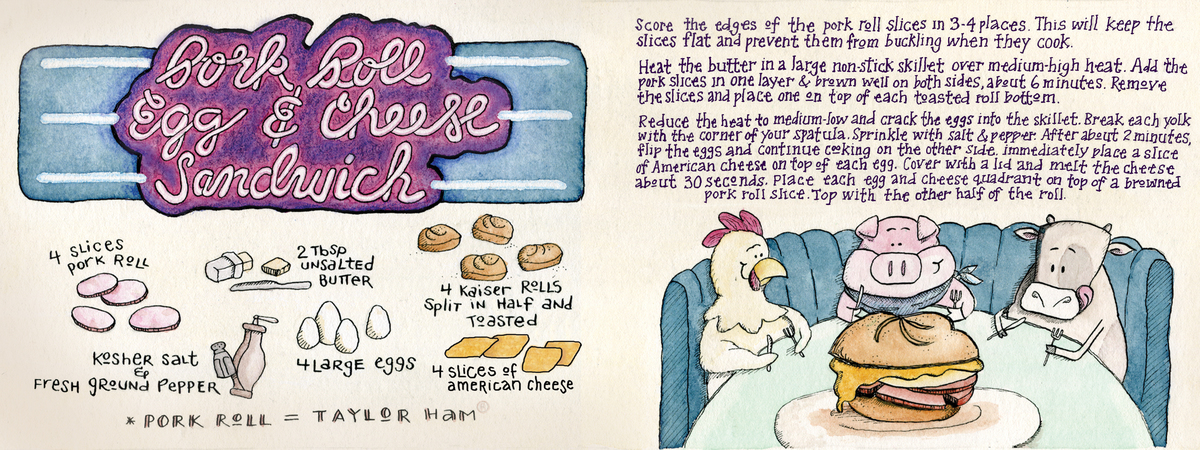 Pork Roll
Egg & Cheese
Sandwich
4 slices
pork roll
2 Tbsp
unsalted
butter
4 Kaiser rolls
split in half and
toasted
Kosher salt
&
fresh ground pepper
4 large eggs
4 slices of
american cheese
* PORK ROLL = TAYLOR HAM®
Score the edges of the pork roll slices in 3-4 places. This will keep the
slices flat and prevent them from buckling when they cook.
Heat the butter in a large non-stick skillet over medium-high heat. Add the
pork slices in one layer & brown well on both sides, about 6 minutes. Remove
the slices and place one on top of each toasted roll bottom.
Reduce the heat to medium-low and crack the eggs into the skillet. Break each yolk
with the corner of your spatula. Sprinkle with salt & pepper. After about 2 minutes,
flip the eggs and continue cooking on the other side. immediately place a slice
of American cheese on top of each egg. Cover with a lid and melt the cheese
about 30 seconds. Place each egg and cheese quadrant on top of a browned
pork roll slice. Top with the other half of the roll.